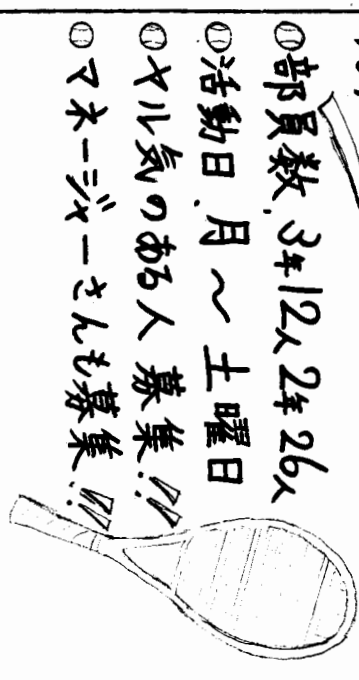 部員数、3年12人 2年26人
活動日、月～土曜日
ヤル気のある人 募集!!
マネージャーさんも募集!!